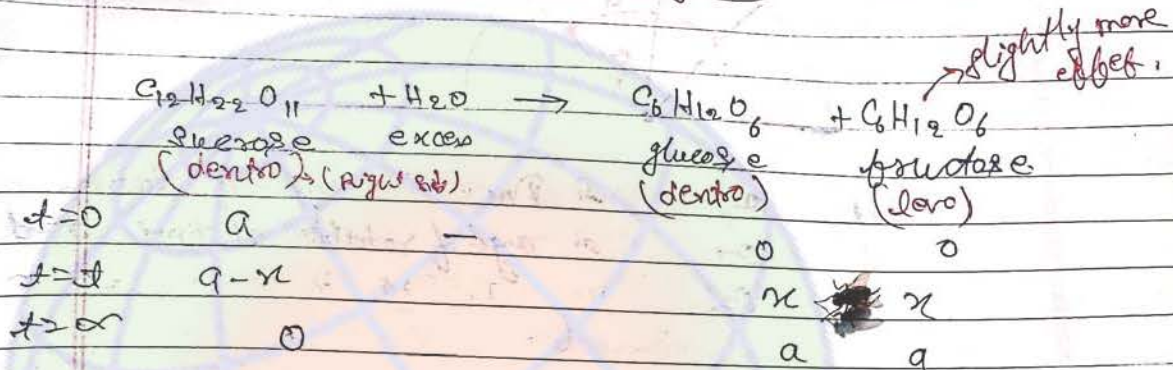 slightly more
effet.
C12H22O11 + H2O → C6H12O6 + C6H12O6
sucrose excess glucose fructose
(dextro) → (right) (dextro) (levo)
t=0 a — 0 0
t=t a-x x x
t=∞ 0 a a